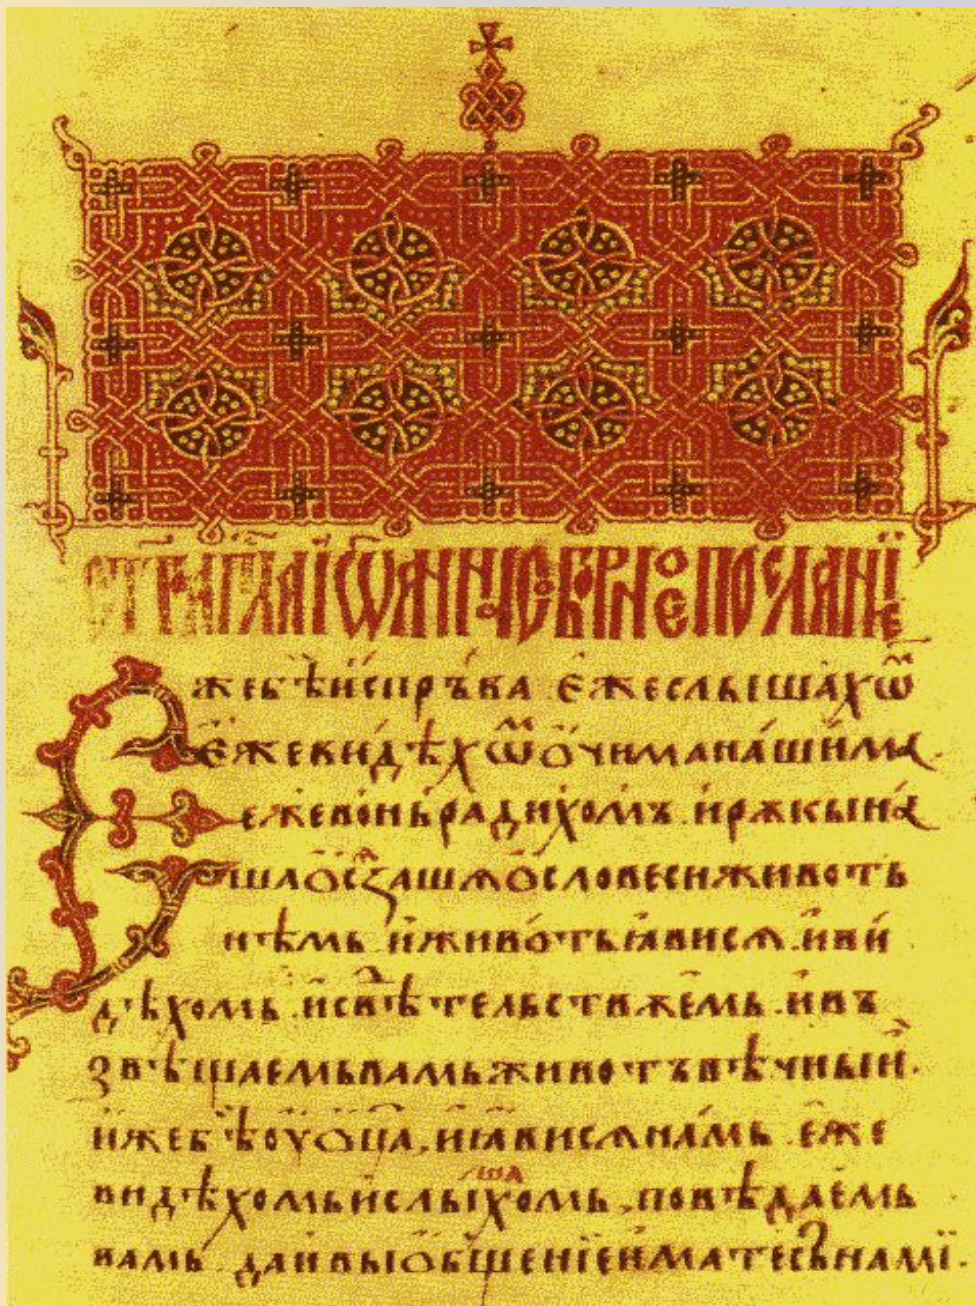 ст҃го ап҃ла іѡанна съборное посланїе
Еже бѣ испръва. еже слышахѡⷨ
еже видѣхѡⷨ ѻчима нашима.
еже воньрадихомъ. и рѫкы на
шѧ ѻсѧзашѧ ѻ словеси животь
нѣмь. и животь ꙗвисѧ. и ви
дѣхомь. и свѣтельствꙋемь. и въ
звѣщаемь вамь животъ вѣчныи.
иже бѣ оу ѻц҃а, и ꙗвисѧ намь. еже
видѣхомь и слышахомь, повѣдаемь
вамь. да и вы ѻбщенїе имате съ нами.